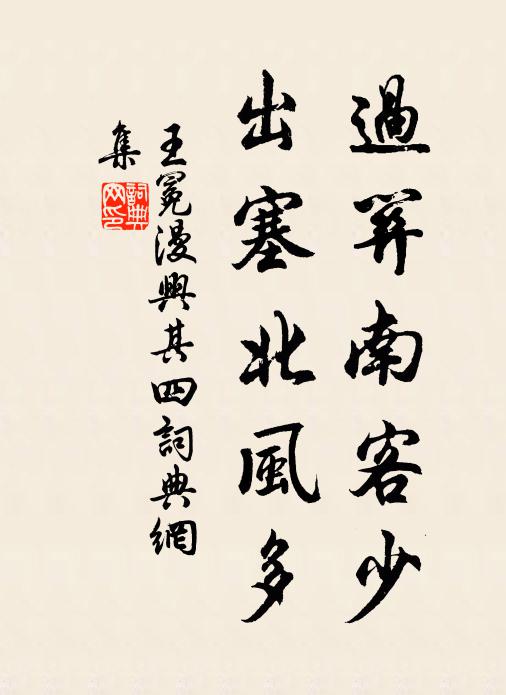 過關南客少
出塞北風多
王冕漫興其四詞典網
集
詞典
网印